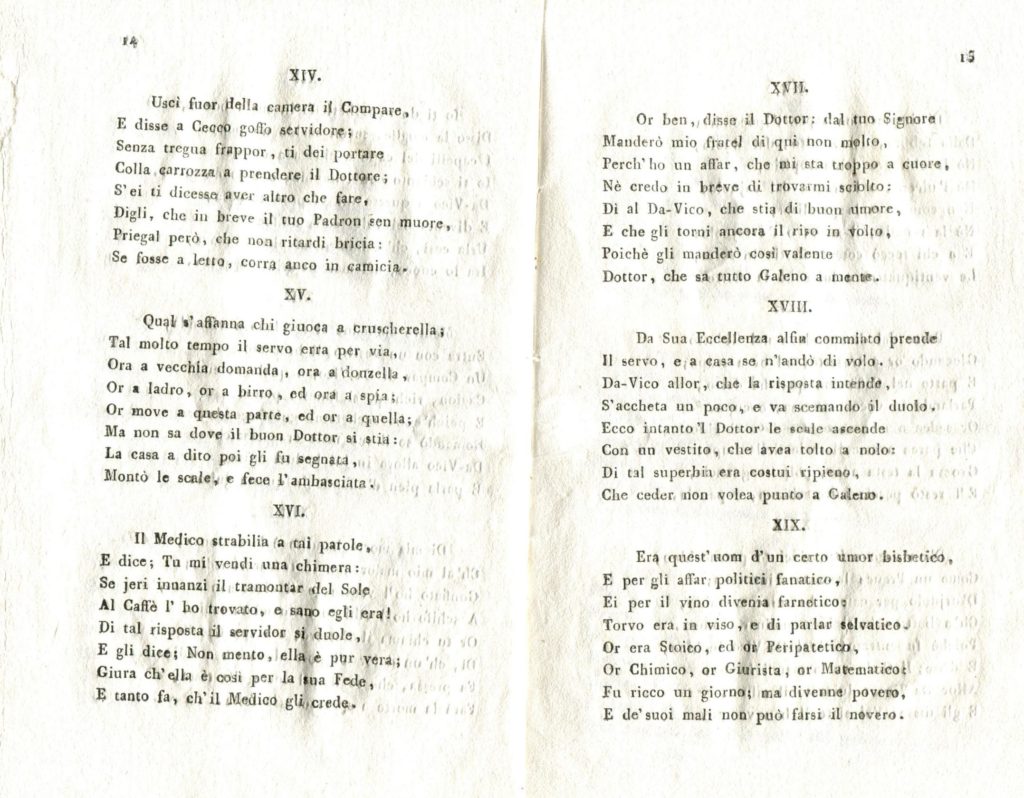 14
XIV.
Uscì fuor della camera il Compare,
E disse a Cecco goffo servidore;
Senza tregua frappor, ti dei portare
Colla carrozza a prendere il Dottore;
S'ei ti dicesse aver altro che fare,
Digli, che in breve il tuo Padron sen muore,
Priegal però, che non ritardi bricia:
Se fosse a letto, corra anco in camicia.
XV.
Qual s'affanna chi giuoca a cruscherella;
Tal molto tempo il servo erra per via,
Ora a vecchia domanda, ora a donzella,
Or a ladro, or a birro, ed ora a spia;
Or move a questa parte, ed or a quella;
Ma non sa dove il buon Dottor si stia:
La casa a dito poi gli fu segnata,
Montò le scale, e fece l'ambasciata.
XVI.
Il Medico strabilia a tai parole,
E dice; Tu mi vendi una chimera:
Se jeri innanzi il tramontar del Sole
Al Caffè l' ho trovato, e sano egli era!
Di tal risposta il servidor si duole,
E gli dice; Non mento, ella è pur vera;
Giura ch'ella è così per la sua Fede,
E tanto fa, ch'il Medico gli crede.
15
XVII.
Or ben, disse il Dottor; dal tuo Signore
Manderò mio fratel di quì non molto,
Perch'ho un affar, che mi sta troppo a cuore,
Nè credo in breve di trovarmi sciolto:
Di al Da-Vico, che stia di buon umore,
E che gli torni ancora il riso in volto,
Poichè gli manderò così valente
Dottor, che sa tutto Galeno a mente.
XVIII.
Da Sua Eccellenza alfin commiato prende
Il servo, e a casa se n'andò di volo.
Da-Vico allor, che la risposta intende,
S'accheta un poco, e va scemando il duolo.
Ecco intanto 'l Dottor le scale ascende
Con un vestito, che avea tolto a nolo:
Di tal superbia era costui ripieno,
Che ceder non volea punto a Galeno.
XIX.
Era quest'uom d'un certo umor bisbetico,
E per gli affar politici fanatico,
Ei per il vino divenia farnetico;
Torvo era in viso, e di parlar selvatico.
Or era Stoico, ed or Peripatetico,
Or Chimico, or Giurista, or Matematico:
Fu ricco un giorno; ma divenne povero,
E de'suoi mali non può farsi il novero.